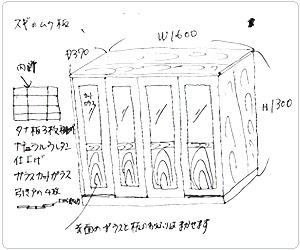 スギのムク板
W1600
D390
H1300
内部
タナ板3枚
ナチュラルウレタン
仕上げ
ガラスカットガラス
引き戸の4枚
前面のガラスと板のかわりはまかせます